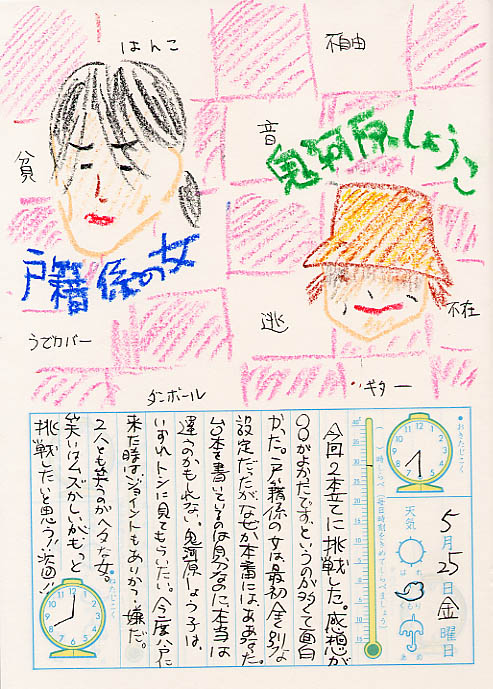 はんこ
不自由
音
鬼河原しょうこ
貧
戸籍係の女
うでカバー
逃
不在
ダンボール
ギター
おきたじこく
5月25日金曜日
天気
はれ
くもり
あめ
今回2本立てに挑戦した。感想が
○○がよかったです、というのが多くて面白
かった。戸籍係の女は最初全く別な
設定だったが、なぜか本番には、ああなった。
台本を書いているのは自分なのに、本当は
違うのかもしれない。鬼河原しょう子は、
いずれトシに見てもらいたい。今度
来た時はジョイントもありか?嫌だ。
2人とも笑うのがヘタな女。
笑いはムズかしいがもっと
挑戦したいと思う!!次回!!
ねたじこく